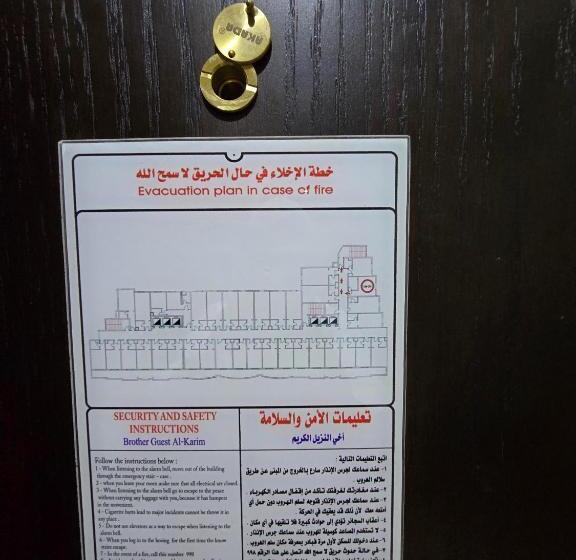 AKADA®
خطة الإخلاء في حال الحريق لا سمح الله
Evacuation plan in case of fire
SECURITY AND SAFETY
INSTRUCTIONS
Brother Guest Al-Karim
Follow the instructions below :
1 - When listening to the alarm bell, move out of the building
through the emergency stair - case .
2 - when you leave your room make sure that all electrical are closed.
3 - When listening to the alarm bell go to escape to the peace
without carrying any luggage with you, because it has hamperst
in the movement.
4 - Cigarette butts lead to major incidents cannot be throw it in
any place .
5 - Do not use elevators as a way to escape when listening to the
alarm bell.
6 - When you log in to the housing, for the first time the know
water escape.
7 - In the event of a fire, call this number 998
تعليمات الأمن والسلامة
أخي النزيل الكريم
اتبع التعليمات التالية :
١- عند سماعك لجرس الإنذار سارع بالخروج من المبنى عن طريق
سلالم الهروب .
٢- عند مغادرتك لغرفتك تأكد من إقفال مصادر الكهرباء .
٣- عند سماعك لجرس الإنذار فتوجه لسلم الهروب دون حمل أي
أمتعه معك لأن ذلك قد يعيقك في الحركة .
٤- أعقاب السجائر تؤدي إلى حوادث كبيرة فلا تلقيها في أي مكان .
٥- لا تستخدم المصاعد كوسيلة للهروب عند سماعك جرس الإنذار .
٦- عند دخولك للسكن لأول مرة فبادر بمعرفة مكان سلم الهروب
٧- في حالة حدوث حريق لا سمح الله اتصل على هذا الرقم ٩٩٨